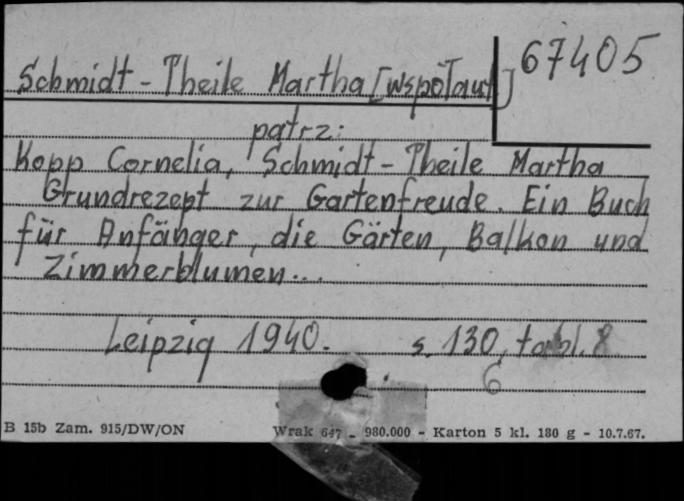 67405
Schmidt-Theile Martha [współaut.]
patrz:
Kopp Cornelia, Schmidt-Theile Martha
Grundrezept zur Gartenfreude. Ein Buch
für Anfänger, die Gärten, Balkon und
Zimmerblumen...
Leipzig 1940. s. 130, tabl. 8
6
B 15b Zam. 915/DW/ON Wrak 647 - 980.000 - Karton 5 kl. 180 g - 10.7.67.